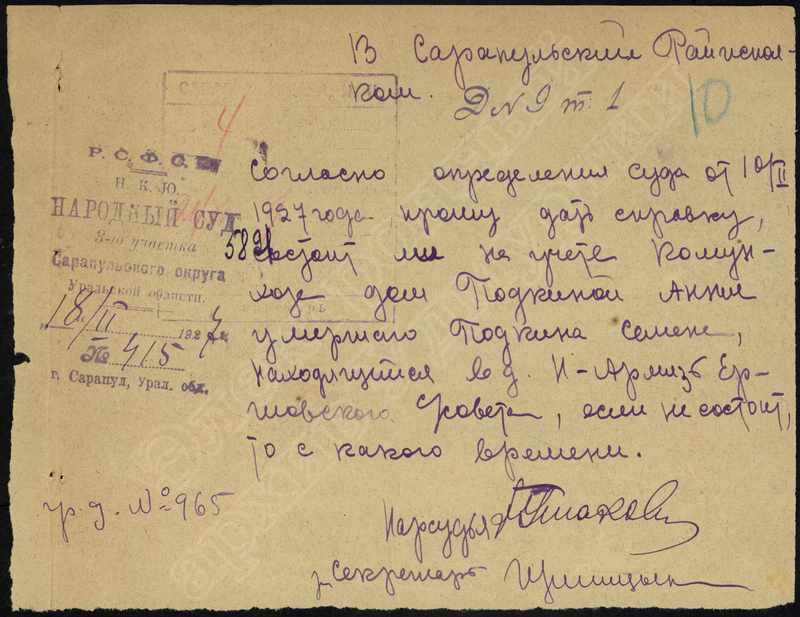 В Сарапульский Райиспол-
ком.
Д N 9 т. 1
10
4
Р. С. Ф. С. Р.
Н. К. Ю.
НАРОДНЫЙ СУД
3-го участка
Сарапульского округа
Уральской области.
„18/II 1927 г.
№ 415
г. Сарапул, Урал. обл.
Согласно определения суда от 10/II
1927 года прошу дать справку,
состоит ли на учете Комун-
хозе дом Подкиной Анне
умершаго Подкина Семена,
находящийся в д. Н-Армязь Ер-
шовского Совета, если не состоит,
то с какого времени.
гр. д. № 965
Нарсудья
Секретарь